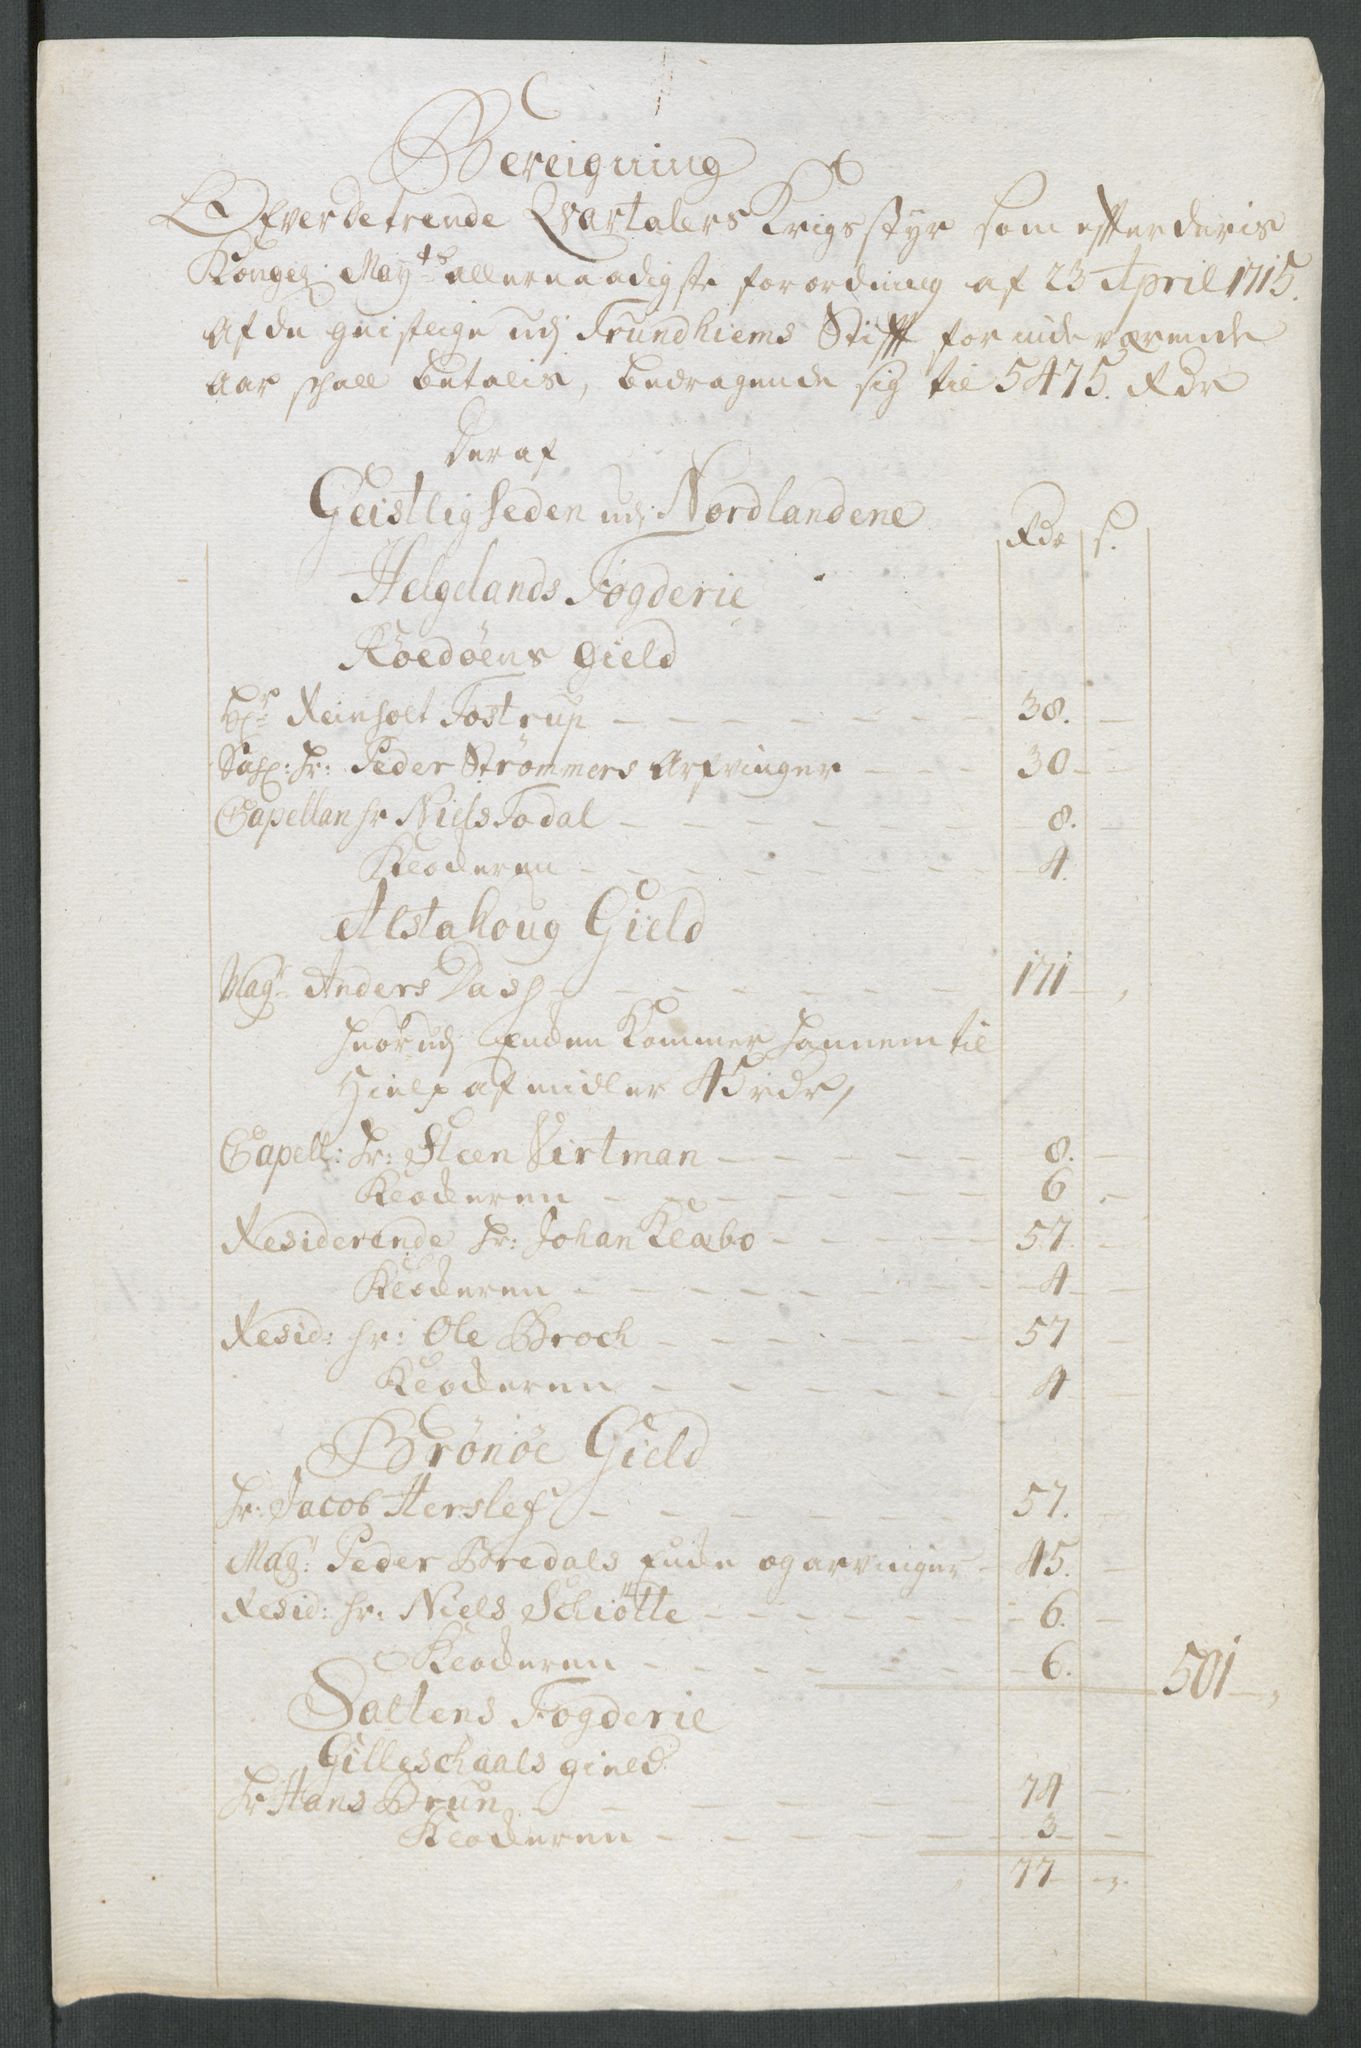 Bereigning
Ofver de trende Qvartalers Krigsstyr som efter deris
Kongel: Mayts allernaadigste forordning af 23 April 1715.
Af de geistlige udj Trundhiems Stifft for indeværende
aar schall betalis, bedragende sig til 5475. Rdr
Deraf
Geistligheden udj Nordlandene
Rdr s.
Helgelands Fogderie
Röedöens gield
Hr Reinholt Tostrup - 38. -
Sahl: Hr: Peder Strømmers Arfvinger - 30 -
Capellan hr Niels Todal - 8. -
Klockeren - 4.
Alstahoug Gield
Magr Anders Dass - 171 -
huor udj Enden Kommer hannem til
Hielp af midler 45 rdr,
Capell: Hr: Steen Virtman - 8. -
Klockeren - 6 -
Residerende Hr: Johan Klæbo - 57. -
Klockeren - 4 -
Resid: hr: Ole Broch - 57 -
Klockeren - 4 -
Brönöe Gield
Hr: Jacob Herslef - 57. -
Magr: Peder Bredals Enke og arvinger - 45. -
Resid: hr: Niels Schiötte - 6. -
Klockeren - 6. 501 -
Saltens Fogderie
Gilleschaals gield
Hr Hans Brun - 74 -
Klockeren - 3 -
77 -